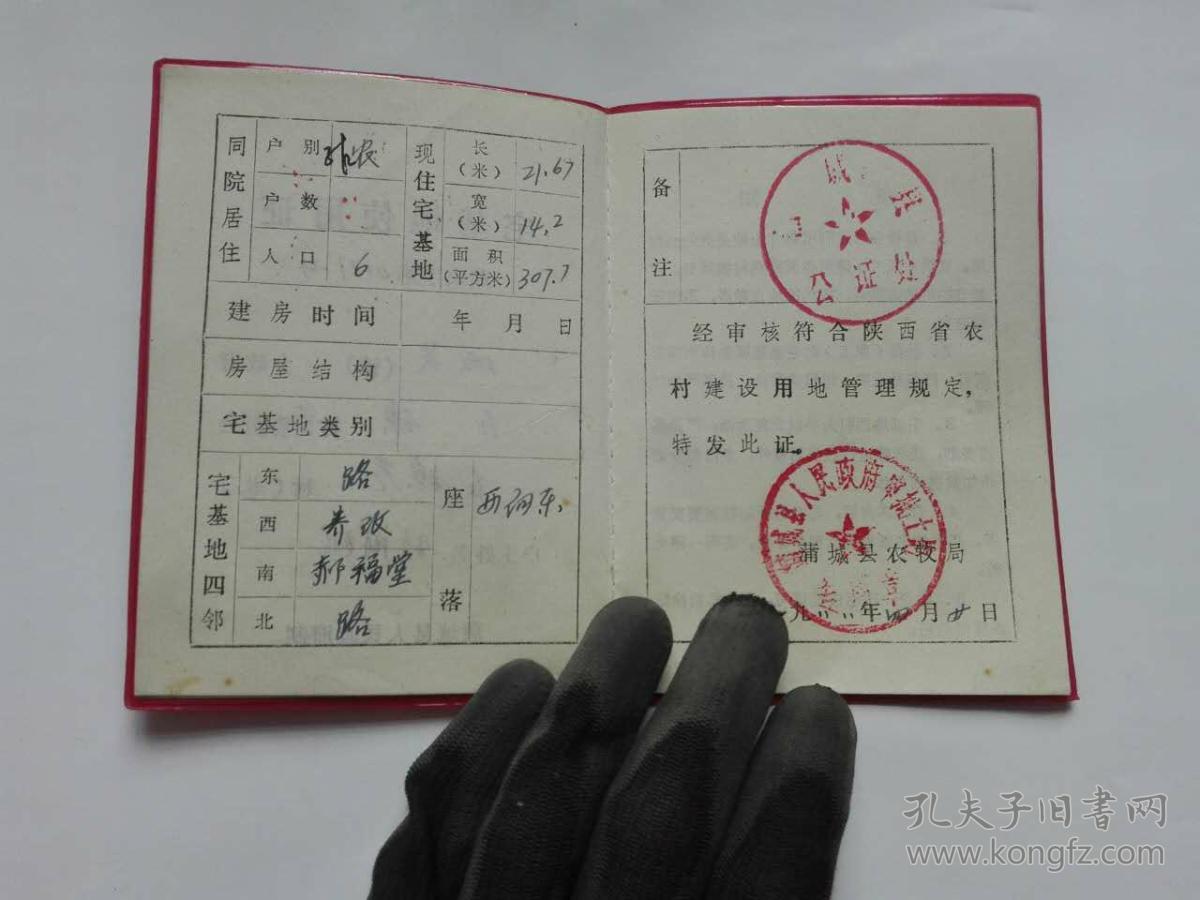 同院居住
户别
户数
人口 6
现住宅基地
长(米) 21.67
宽(米) 14.2
面积(平方米) 307.7
建房时间 年 月 日
房屋结构
宅基地类别
宅基地四邻
东 路
西
南 郝福堂
北 路
座落
备注
城县
公证处
经审核符合陕西省农
村建设用地管理规定,
特发此证。
蒲城县人民政府
蒲城县农牧局
九 年 月 廿 日
孔夫子旧书网
www.kongfz.com